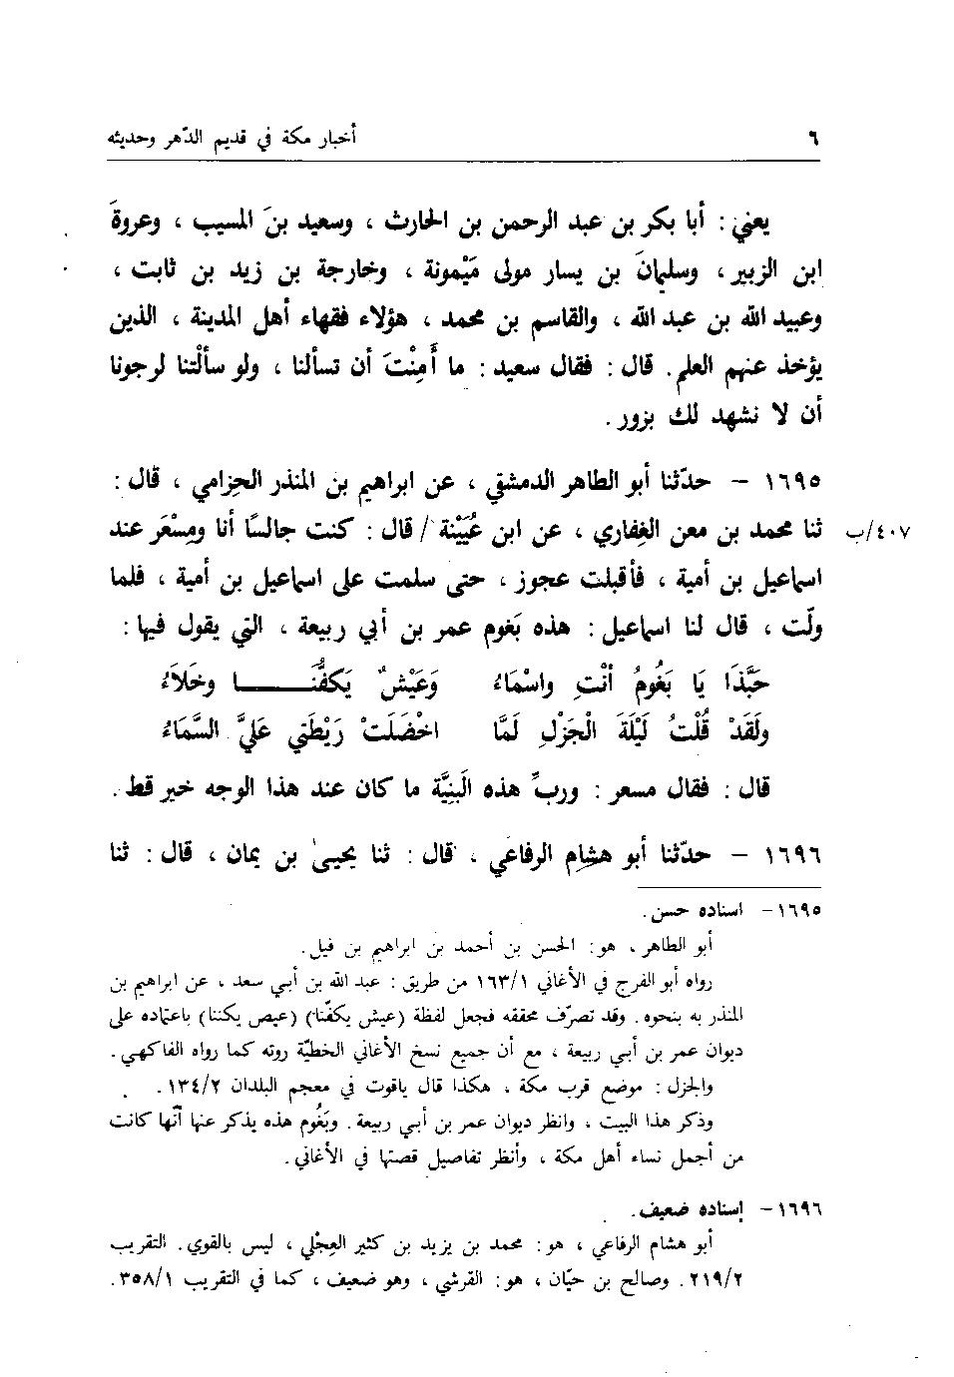 ٦ أخبار مكة في قديم الدّهر وحديثه
يعني : أبا بكر بن عبد الرحمن بن الحارث ، وسعيد بنَ المسيب ، وعروةَ
ابن الزبير ، وسليمانَ بن يسار مولى مَيْمونة ، وخارجة بن زيد بن ثابت ،
وعبيد الله بن عبد الله ، والقاسم بن محمد ، هؤلاء فقهاء أهل المدينة ، الذين
يؤخذ عنهم العلم . قال : فقال سعيد : ما أَمِنْتَ أن تسألنا ، ولو سألْتنا لرجونا
أن لا نشهد لك بزور .
١٦٩٥ – حدّثنا أبو الطاهر الدمشقي ، عن ابراهيم بن المنذر الحِزامي ، قال :
ثنا محمد بن معن الغِفاري ، عن ابن عُيَيْنة / قال : كنت جالسًا أنا ومِسْعَر عند ٤٠٧/ب
اسماعيل بن أمية ، فأقبلت عجوز ، حتى سلمت على اسماعيل بن أمية ، فلما
ولّت ، قال لنا اسماعيل : هذه بَغوم عمر بن أبي ربيعة ، التي يقول فيها :
حَبَّذَا يَا بَغُومُ أنْتِ واسْمَاءُ وَعَيْشٌ يَكفُّنَــــــا وخَلَاءُ
ولَقَدْ قُلْتُ لَيْلَةَ الْجَزْلِ لَمَّا اخْضَلَتْ رَيْطَتي عَليَّ السَّمَاءُ
قال : فقال مسعر : وربِّ هذه الَبنِيَّة ما كان عند هذا الوجه خير قط .
١٦٩٦ – حدّثنا أبو هشام الرفاعي ، قال : ثنا يحيىٰ بن يمان ، قال : ثنا
١٦٩٥– اسناده حسن .
أبو الطاهر ، هو : الحسن بن أحمد بن ابراهيم بن فيل .
رواه أبو الفرج في الأغاني ١٦٣/١ من طريق : عبد الله بن أبي سعد ، عن ابراهيم بن
المنذر به بنحوه . وقد تصرّف محققه فجعل لفظة (عيش يكفّنا) (عيص يكننا) باعتماده على
ديوان عمر بن أبي ربيعة ، مع أن جميع نسخ الأغاني الخطيّة روته كما رواه الفاكهي .
والجزل : موضع قرب مكة ، هكذا قال ياقوت في معجم البلدان ١٣٤/٢ .
وذكر هذا البيت ، وانظر ديوان عمر بن أبي ربيعة . وبَغُوم هذه يذكر عنها أنّها كانت
من أجمل نساء أهل مكة ، وأنظر تفاصيل قصتها في الأغاني .
١٦٩٦– إسناده ضعيف .
أبو هشام الرفاعي ، هو : محمد بن يزيد بن كثير العِجْلي ، ليس بالقوي . التقريب
٢١٩/٢ . وصالح بن حيّان ، هو : القرشي ، وهو ضعيف ، كما في التقريب ٣٥٨/١ .